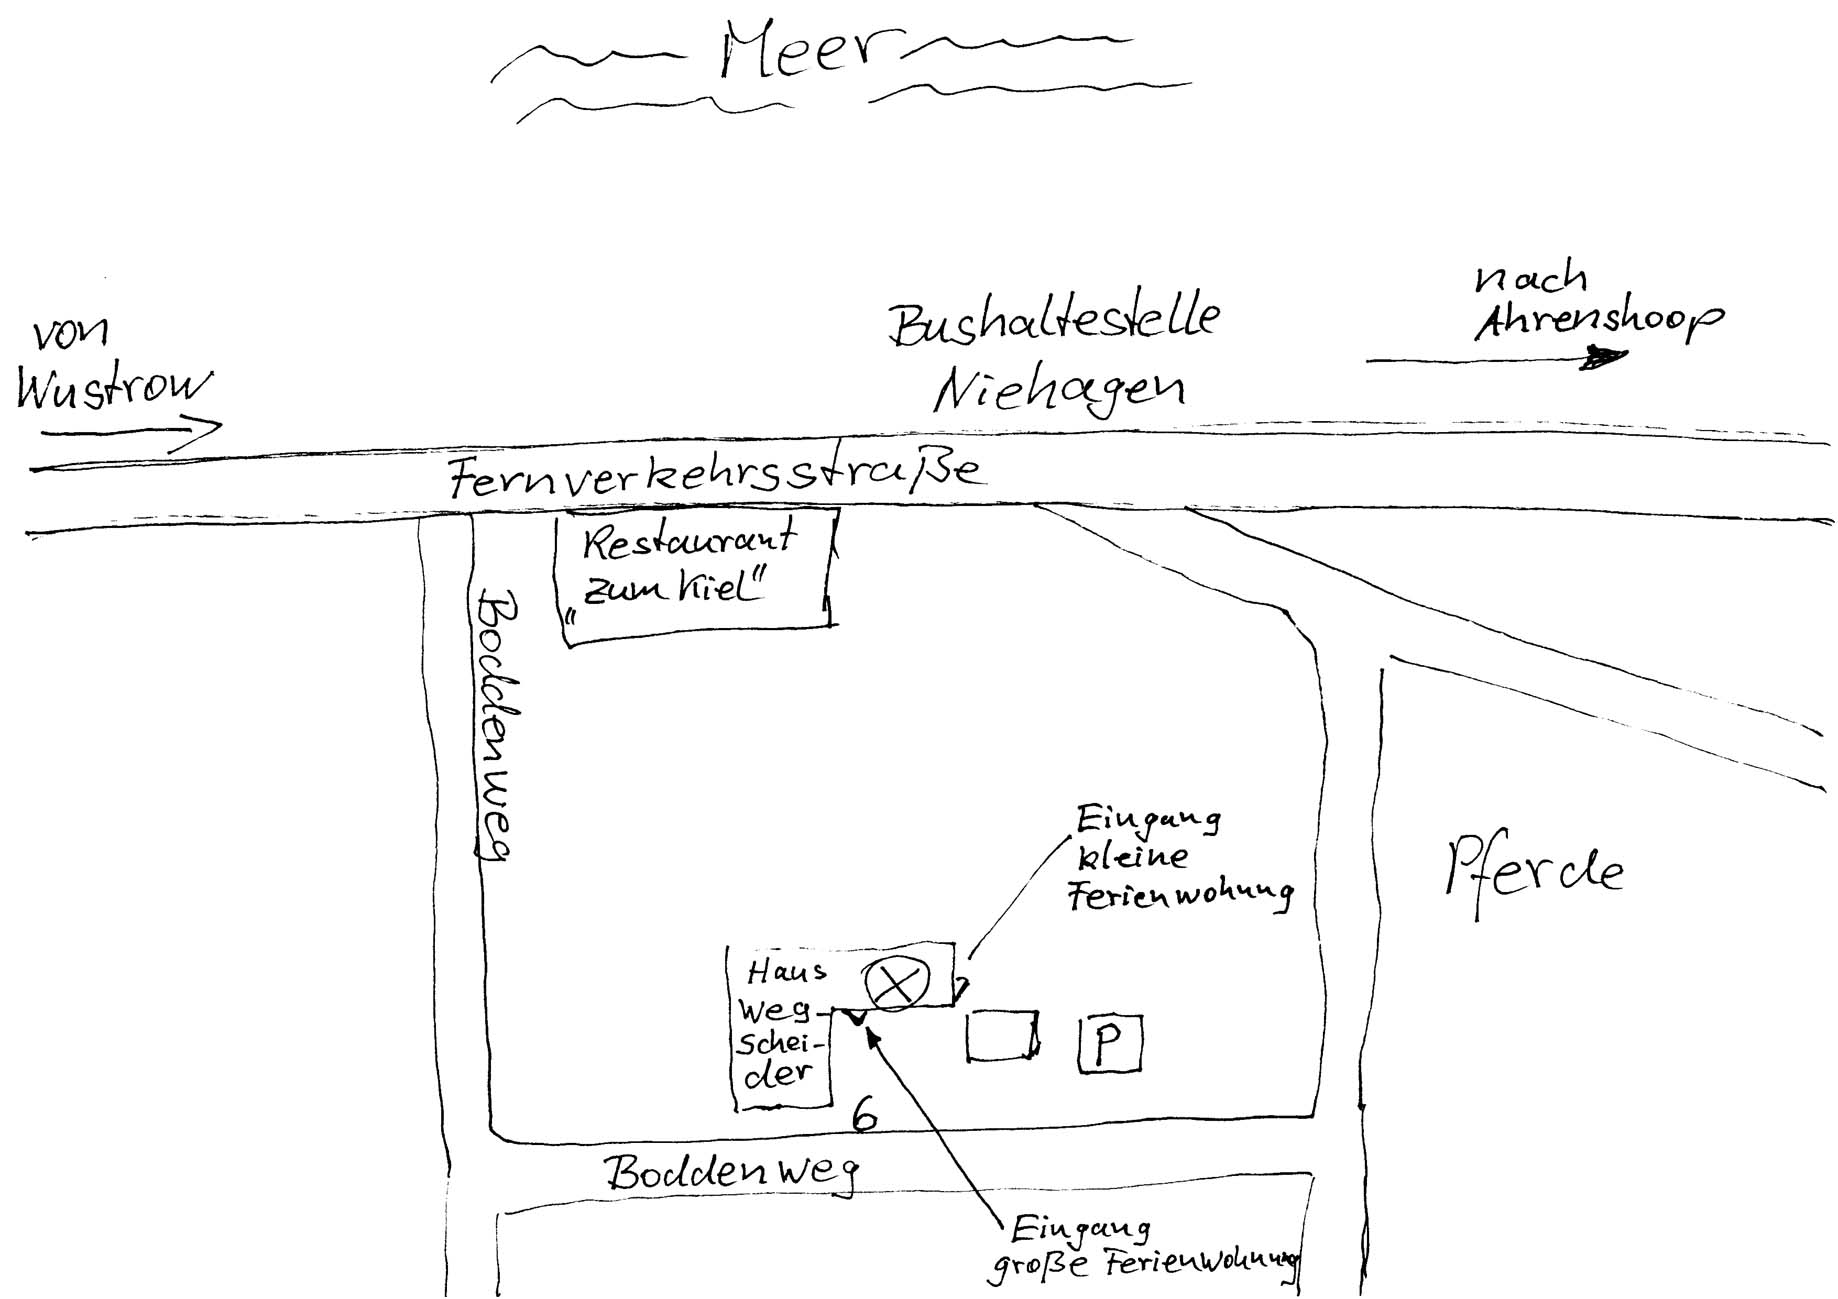 Meer
von
Wustrow
Bushaltestelle
Niehagen
nach
Ahrenshoop
Fernverkehrsstraße
Restaurant
„zum Kiel“
Boddenweg
Eingang
kleine
Ferienwohnung
Pferde
Haus
Weg-
schei-
der
P
6
Boddenweg
Eingang
große Ferienwohnung